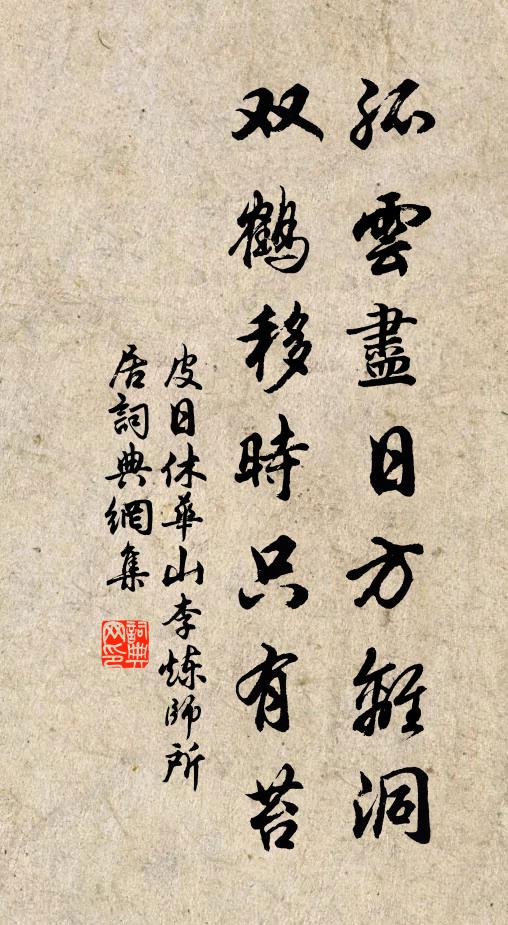 孤雲盡日方離洞
双鶴移時只有苔
皮日休華山李炼師所
居詞典網集
詞典
网印